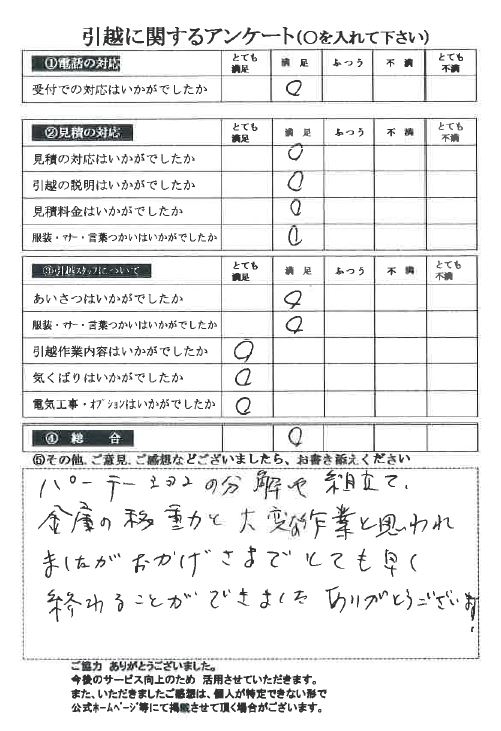 引越に関するアンケート(〇を入れて下さい)
①電話の対応 とても満足 満足 ふつう 不満 とても不満
受付での対応はいかがでしたか 〇
②見積の対応 とても満足 満足 ふつう 不満 とても不満
見積の対応はいかがでしたか 〇
引越の説明はいかがでしたか 〇
見積料金はいかがでしたか 〇
服装・マナー・言葉つかいはいかがでしたか 〇
③引越スタッフについて とても満足 満足 ふつう 不満 とても不満
あいさつはいかがでしたか 〇
服装・マナー・言葉つかいはいかがでしたか 〇
引越作業内容はいかがでしたか 〇
気くばりはいかがでしたか 〇
電気工事・オプションはいかがでしたか 〇
④総合 〇
⑤その他、ご意見、ご感想などございましたら、お書き添えください
パーテーションの分解や組立て、
金庫の移動力と大変な作業と思われ
ましたがおかげさまでとても早く
終わることができました ありがとうございます!
ご協力 ありがとうございました。
今後のサービス向上のため 活用させていただきます。
また、いただきましたご感想は、個人が特定できない形で
公式ホームページ等にて掲載させて頂く場合がございます。